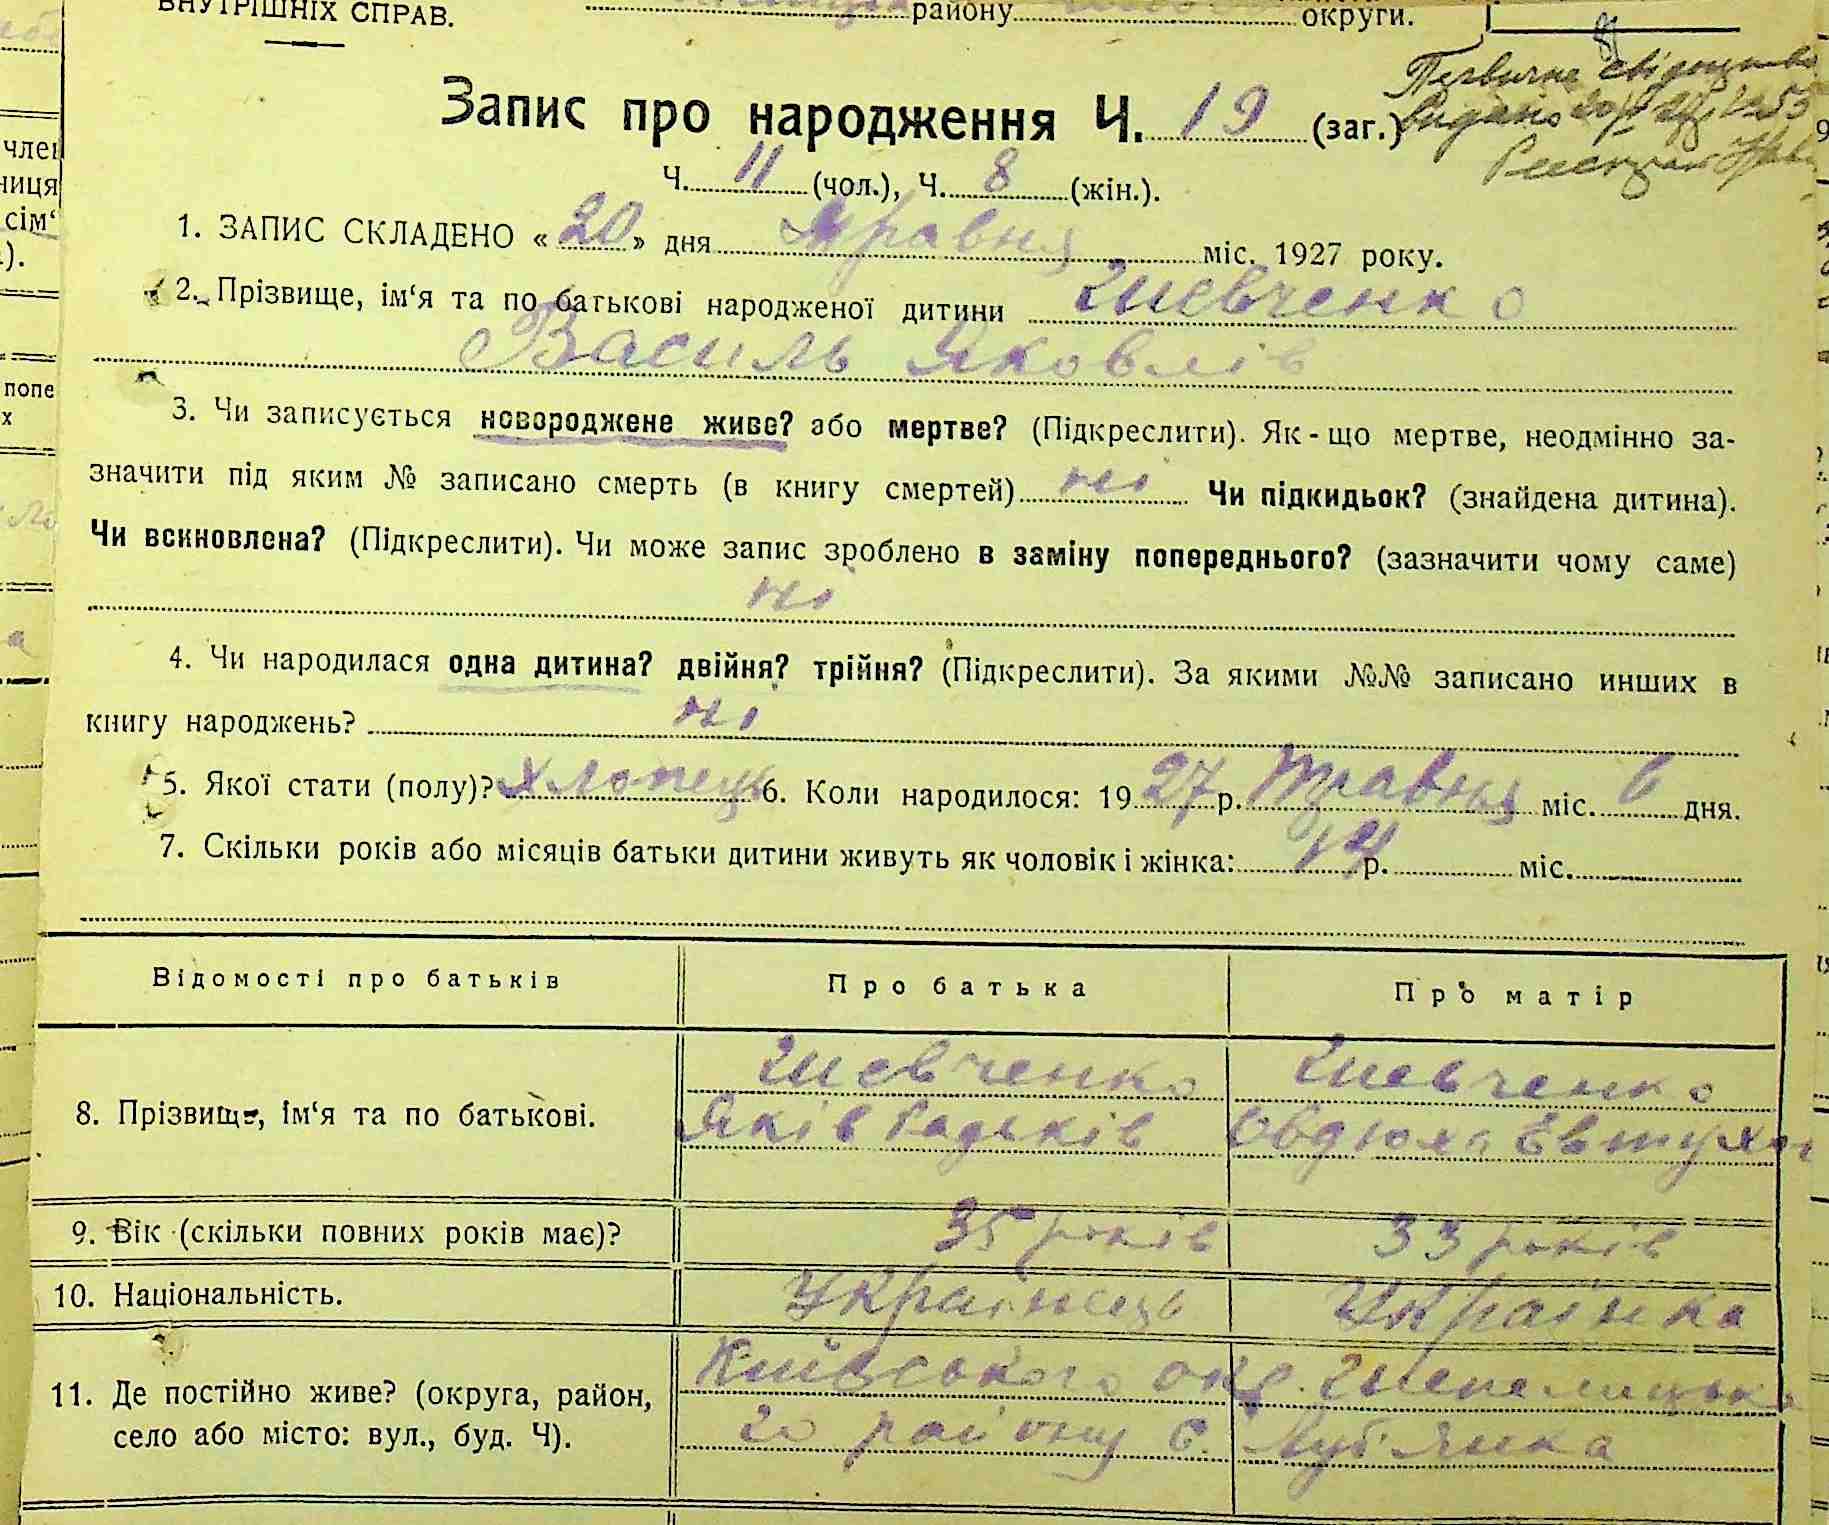 ВНУТРІШНІХ СПРАВ.
району округи.
Запис про народження Ч. 19 (заг.)
Первичне свідоцтво
видано
Ч. 11 (чол.), Ч. 8 (жін.).
1. ЗАПИС СКЛАДЕНО « 20 » дня травня міс. 1927 року.
2. Прізвище, ім‘я та по батькові народженої дитини Шевченко
Василь Яковлів
3. Чи записується новороджене живе? або мертве? (Підкреслити). Як-що мертве, неодмінно за-
значити під яким № записано смерть (в книгу смертей) ні Чи підкидьок? (знайдена дитина).
Чи всиновлена? (Підкреслити). Чи може запис зроблено в заміну попереднього? (зазначити чому саме)
ні
4. Чи народилася одна дитина? двійня? трійня? (Підкреслити). За якими №№ записано инших в
книгу народжень? ні
5. Якої стати (полу)? хлопець 6. Коли народилося: 19 27 р. травня міс. 6 дня.
7. Скільки років або місяців батьки дитини живуть як чоловік і жінка: 14 р. міс.
Відомості про батьків Про батька Про матір
8. Прізвище, ім‘я та по батькові. Шевченко Яків Радьків Шевченко Овдюха Евтухи
9. Вік (скільки повних років має)? 35 років 33 років
10. Національність. Українець Українка
11. Де постійно живе? (округа, район, Київського окр. Шепелицько
село або місто: вул., буд. Ч). го району с. Лубянка